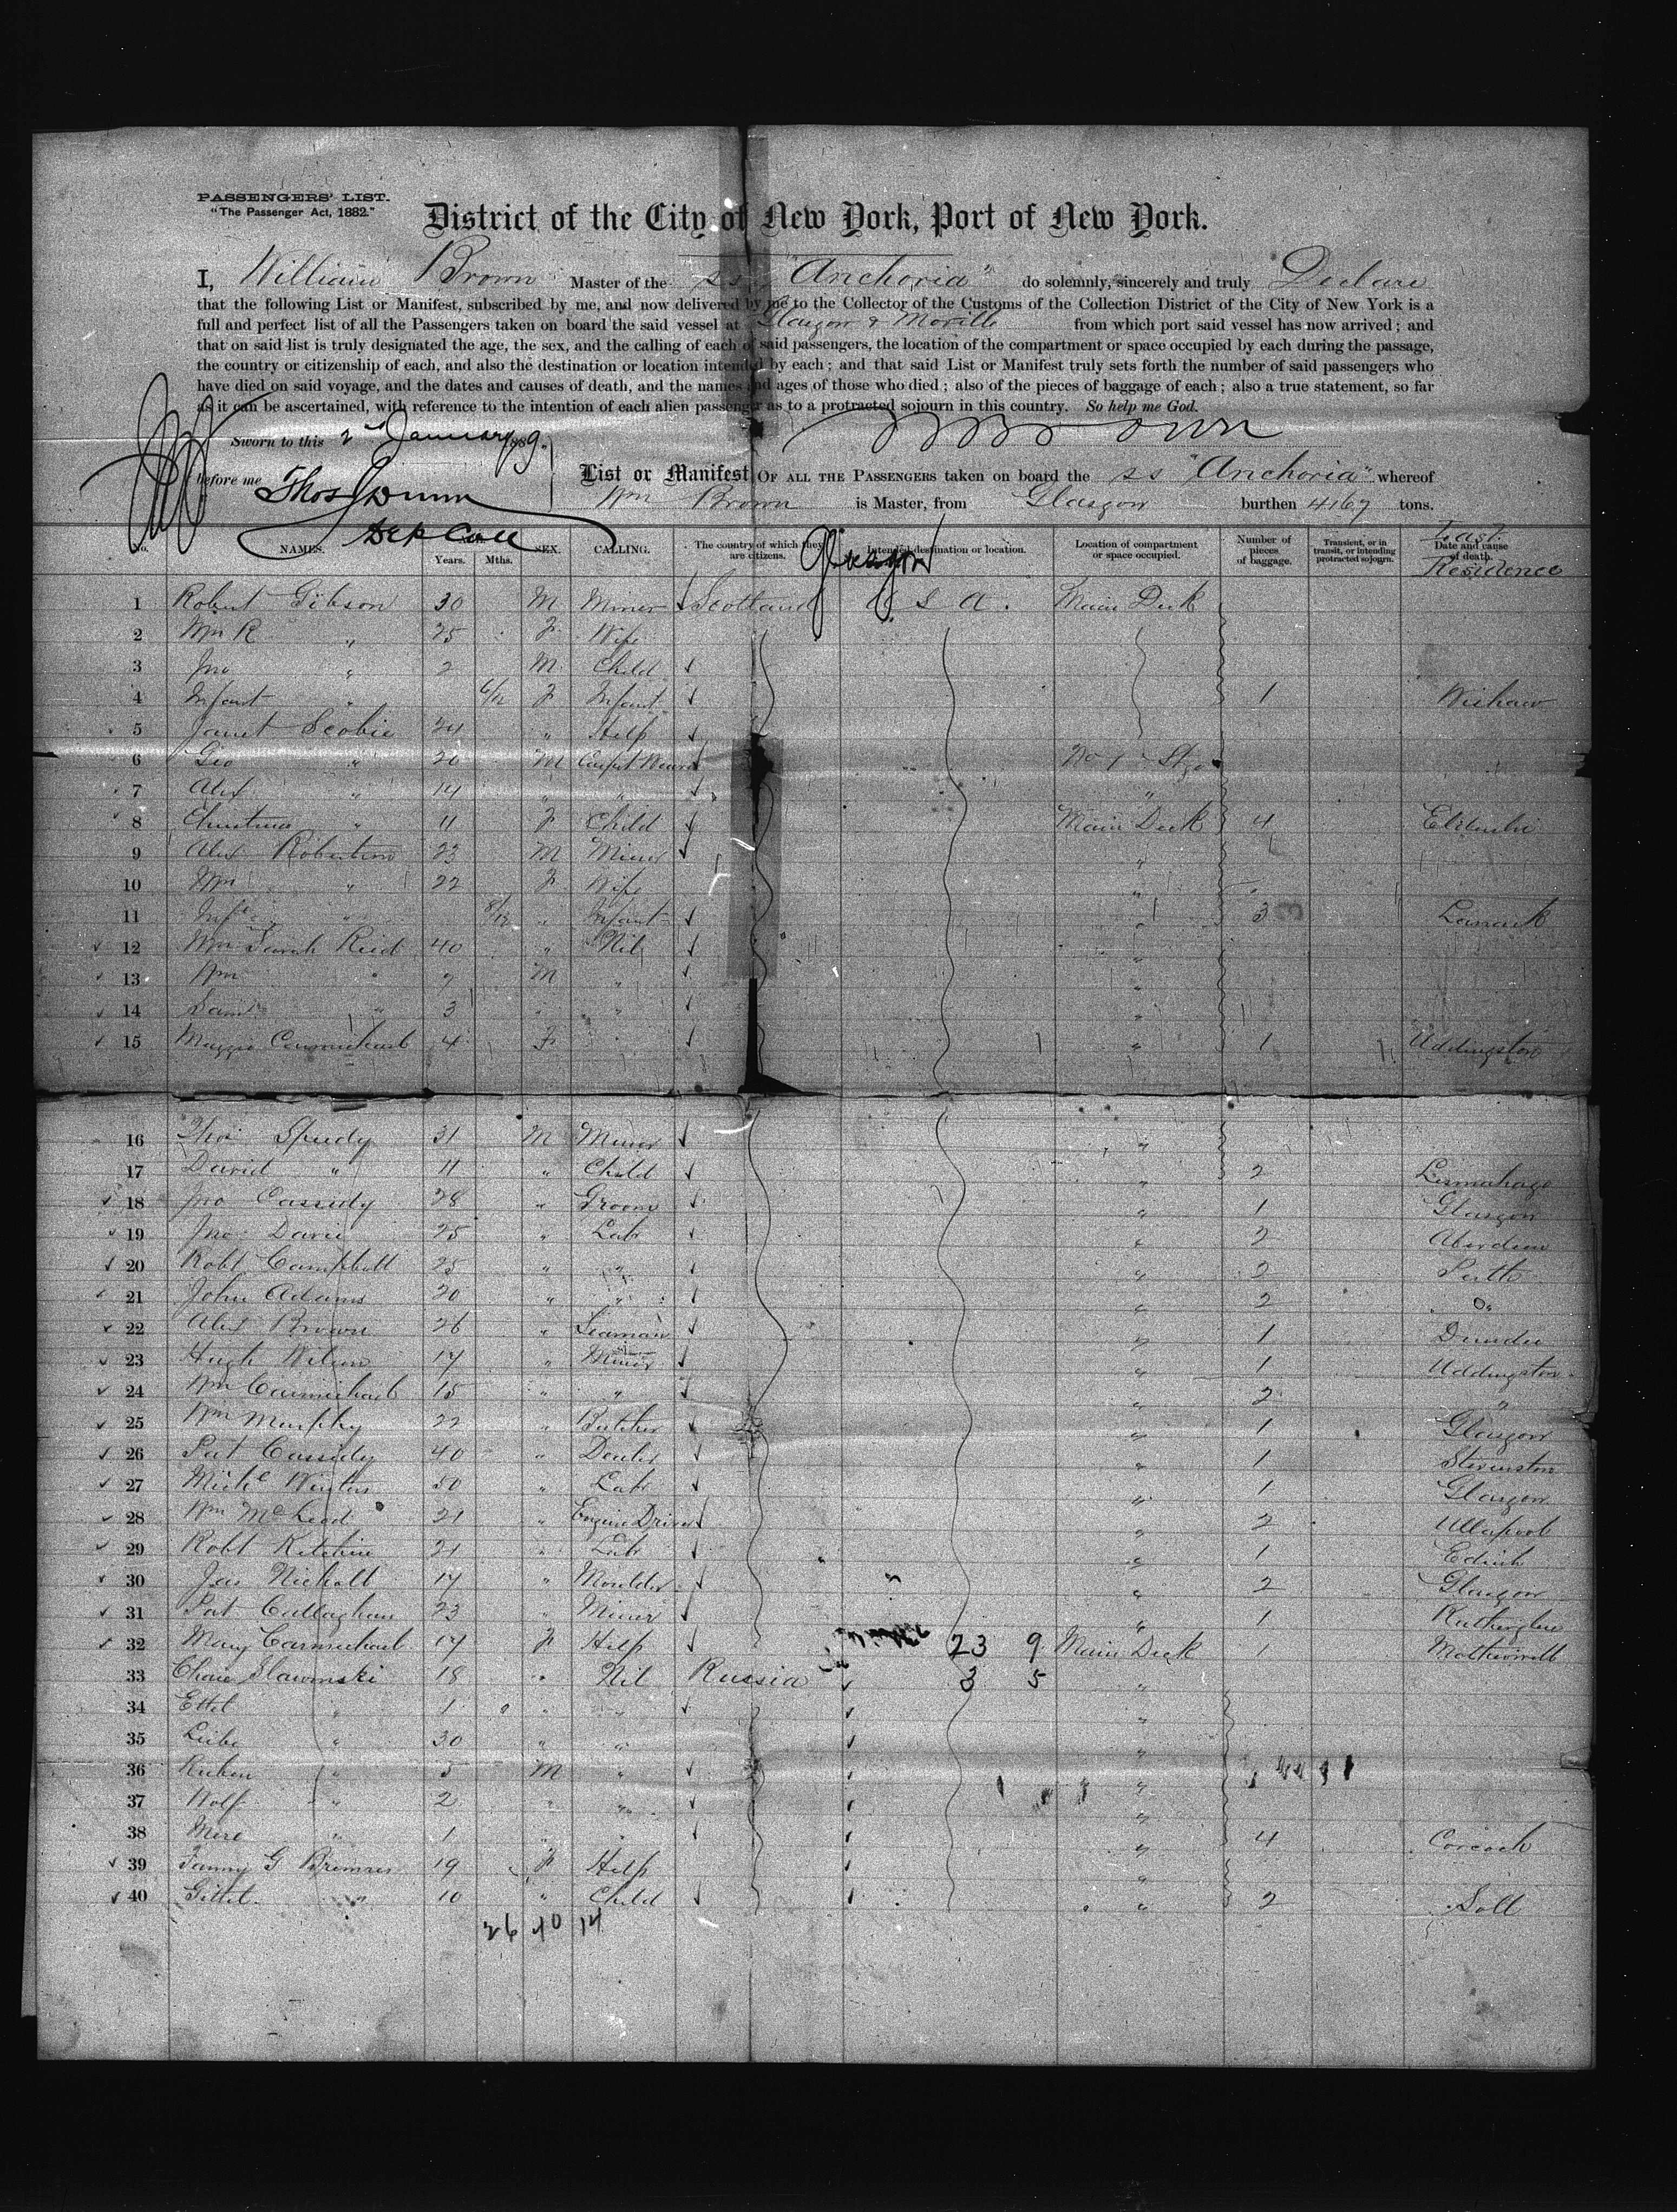 PASSENGERS' LIST.
"The Passenger Act, 1882."
District of the City of New York, Port of New York.
I, William Brown Master of the ss "Anchoria" do solemnly, sincerely and truly Declare
that the following List or Manifest, subscribed by me, and now delivered by me to the Collector of the Customs of the Collection District of the City of New York is a
full and perfect list of all the Passengers taken on board the said vessel at Glasgow & Moville from which port said vessel has now arrived; and
that on said list is truly designated the age, the sex, and the calling of each of said passengers, the location of the compartment or space occupied by each during the passage,
the country or citizenship of each, and also the destination or location intended by each; and that said List or Manifest truly sets forth the number of said passengers who
have died on said voyage, and the dates and causes of death, and the names and ages of those who died; also of the pieces of baggage of each; also a true statement, so far
as it can be ascertained, with reference to the intention of each alien passenger as to a protracted sojourn in this country. So help me God.
Sworn to this 2 January 1889. Wm Brown
before me Thos Dunn List or Manifest OF ALL THE PASSENGERS taken on board the ss "Anchoria" whereof
Wm Brown is Master, from Glasgow burthen 4167 tons.
Dep Coll Glasgow
No. NAMES. Years. Mths. SEX. CALLING. The country of which they are citizens. Intended destination or location. Location of compartment or space occupied. Number of pieces of baggage. Transient, or in transit, or intending protracted sojourn. Date and cause of death. Last Residence
1 Robert Gibson 30 M Miner Scotland U S A. Main Deck
2 Mrs R " 25 F Wife
3 Jno " 2 M Child
4 Infant " 6/12 F Infant 1 Wishaw
5 Janet Scobie 24 " Help
6 Geo " 20 M Carpet Weaver No 1 Stge
7 Alex " 14 " " "
8 Christina " 11 F Child Main Deck 4
9 Alex Robertson 23 M Miner "
10 Mrs " 22 F Wife "
11 Inft " 8/12 " Infant " 3 Lanark
12 Mrs Sarah Reid 40 " Nil "
13 Wm " 7 M " "
14 Saml " 3 " " "
15 Maggie Carmichael 4 F " " 1 Uddingston
16 Thos Speedy 31 M Miner "
17 David " 11 " Child " 2 Lesmahago
18 Jno Cassidy 28 " Groom " 1 Glasgow
19 Jno Davie 25 " Labr " 2 Aberdeen
20 Robt Campbell 25 " " " 2 Perth
21 John Adams 20 " " " 2 Do
22 Alex Brown 26 " Seaman " 1 Dundee
23 Hugh Wilson 17 " Miner " 1 Uddingston
24 Wm Carmichael 15 " " " 2 "
25 Wm Murphy 22 " Butcher " 1 Glasgow
26 Pat Cassidy 40 " Dealer " 1 Stevenston
27 Michl Winters 50 " Labr " 1 Glasgow
28 Wm McLeod 21 " Engine Driver " 2 Ullapool
29 Robt Ritchie 21 " Labr " 1 Edinh
30 Jas Nicholl 17 " Moulder " 2 Glasgow
31 Pat Callaghan 23 " Miner " 1 Rutherglen
32 Mary Carmichael 17 F Help 23 9 Main Deck 1 Motherwell
33 Chaie Slawinski 18 " Nil Russia 3 5 "
34 Ettel " 1 " " "
35 Leibe " 30 " " "
36 Ruben " 5 M " "
37 Wolf " 2 " " "
38 Mere " 1 " " " 4
39 Fanny G Bremner 19 F Help "
40 Gittel " 10 " Child " 2
26 40 14